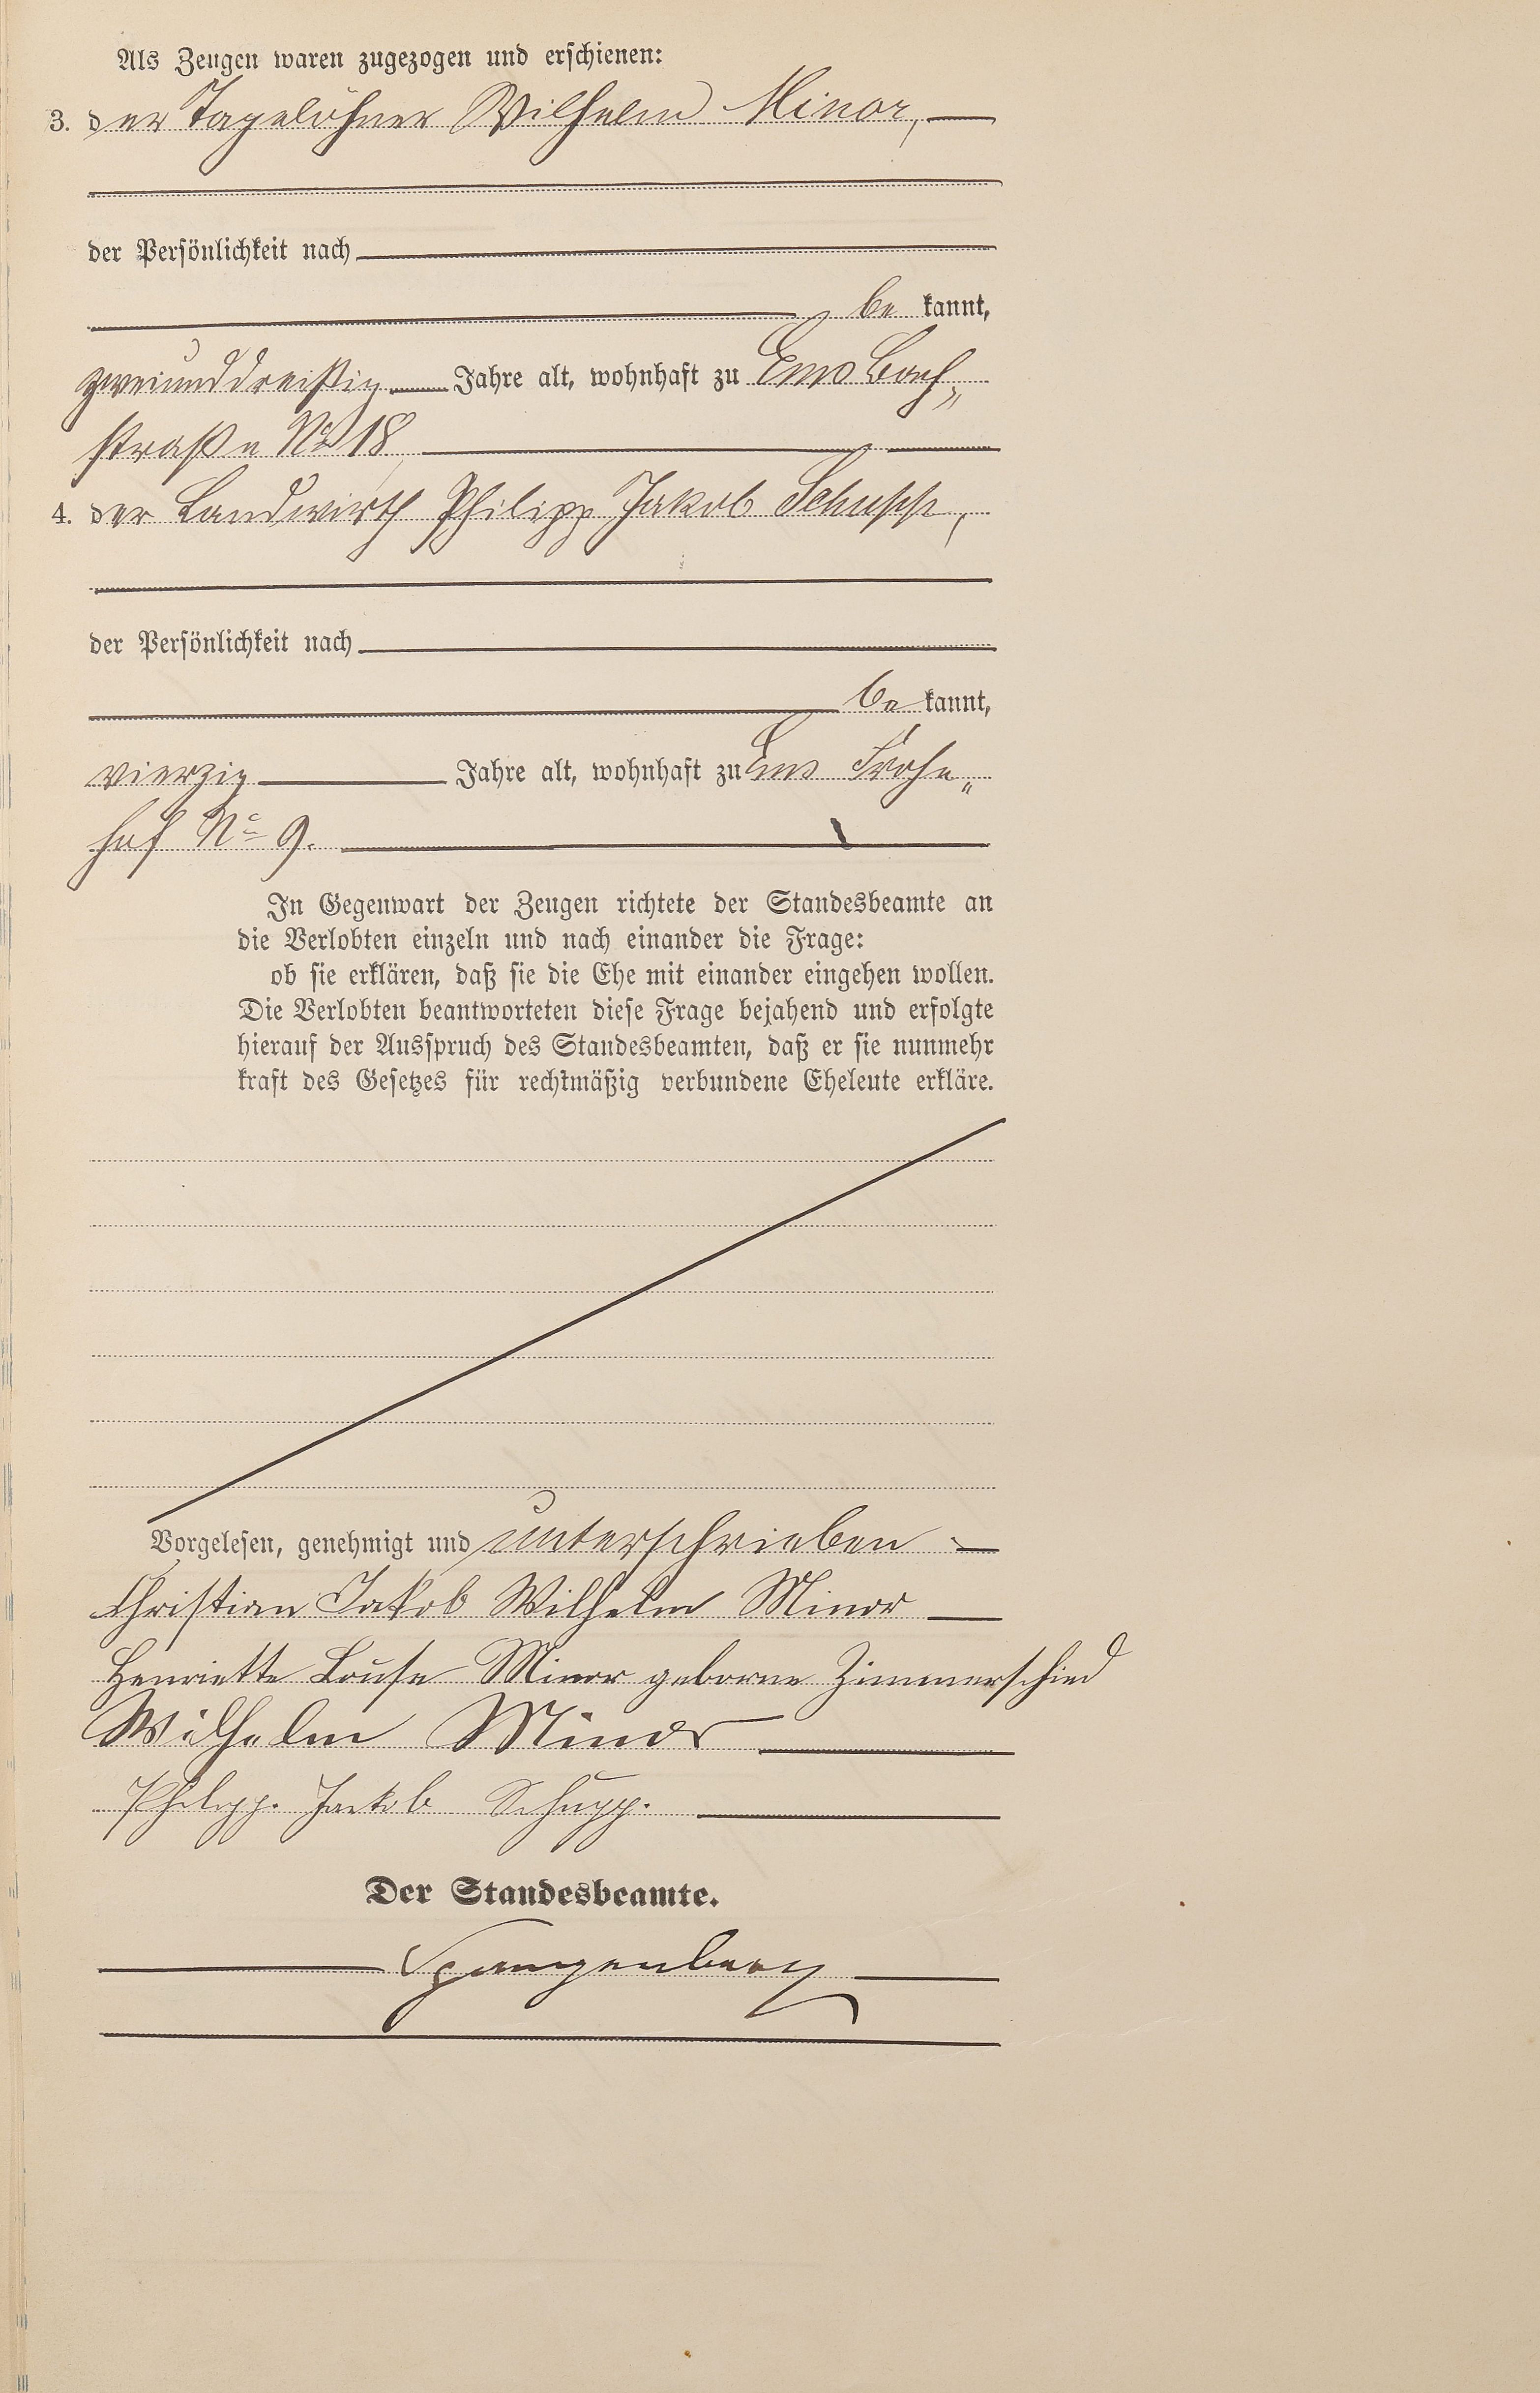 Als Zeugen waren zugezogen und erschienen:
3. der Tagelöhner Wilhelm Minor,
der Persönlichkeit nach
be kannt,
zweiunddreißig Jahre alt, wohnhaft zu Ems Bach„
straße No 18
4. der Landwirth Philipp Jakob Schupp,
der Persönlichkeit nach
be kannt,
vierzig Jahre alt, wohnhaft zu Ems Frohn„
hof No 9.
In Gegenwart der Zeugen richtete der Standesbeamte an
die Verlobten einzeln und nach einander die Frage:
ob sie erklären, daß sie die Ehe mit einander eingehen wollen.
Die Verlobten beantworteten diese Frage bejahend und erfolgte
hierauf der Ausspruch des Standesbeamten, daß er sie nunmehr
kraft des Gesetzes für rechtmäßig verbundene Eheleute erkläre.
Vorgelesen, genehmigt und unterschrieben
Christian Jakob Wilhelm Minor
Henriette Louise Minor geborne Zimmerschied
Wilhelm Minor
Philipp. Jakob Schupp.
Der Standesbeamte.
Spangenberg